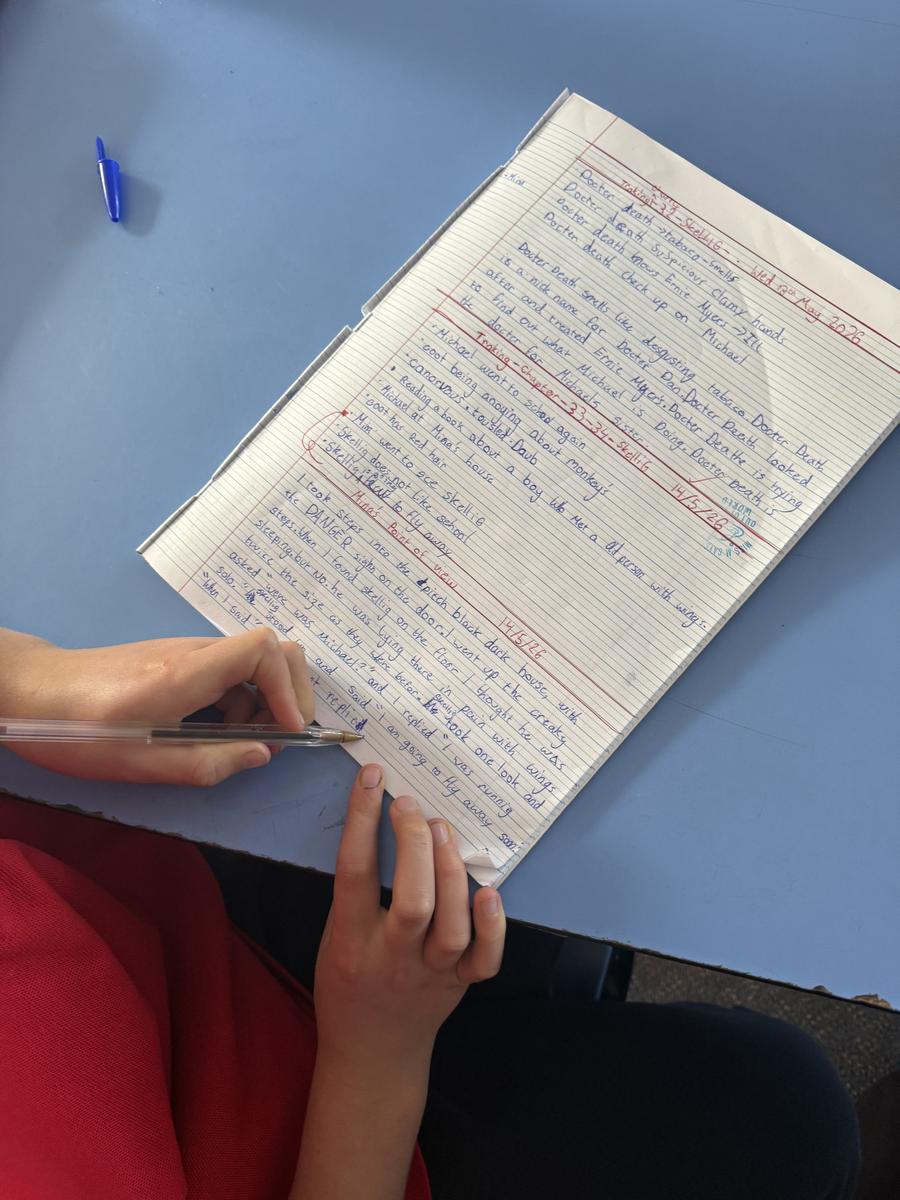 Traking - 32 - Skellig - Wed 12th May 2026
Mina
Docter death → tabaco - smells
Docter death Suspicious Clamy hands
Docter death knows Ernie Myers →
Docter death Check up on Michael
Docter Death smells like disgusting tabaco. Docter Death
is a nick name for Docter Dan. Docter Death looked
after and treated Ernie Myers. Docter Deathe is trying
to find out what Michael is Doing. Docter Death is
the doctor for Michaels sister.
Traking - Chapter - 33-34 - Skellig 14/5/26
• Michael went to school again
• Coot being anoying about monkey's
• canorvous. tousled. Daub
• Reading a book about a boy who Met a old person with wings.
• Michael at Mina's house
• coot has red hair
• Mina went to see skellig
• Skellig does not like school
• Skellig to fly away
Mina's Point of view 14/5/26
I took steps into the pitch black dark house, with
the DANGER sign on the door. I went up the creaky
steps. When I found skellig on the floor I thought he was
sleeping but no. he was lying there in pain with wings
twice the size as they were before. Skellig took one look and
asked "were was Michael?" and I replied "I was runnig
solo. " Skellig stood and said "I am going to fly away soon."
"When I said replied